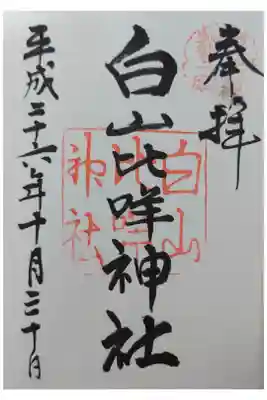 奉拝
白山比咩神社
白山
比咩
神社
平成二十六年十月二十日